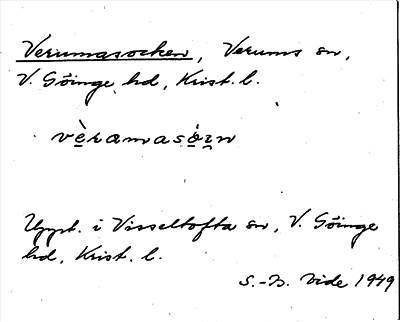 Verumasocken, Verums sn,
V. Göinge hd, Krist. l.
vèramasòzn
Uppt. i Visseltofta sn, V. Göinge
hd, Krist. l.
S.-B. Vide 1949